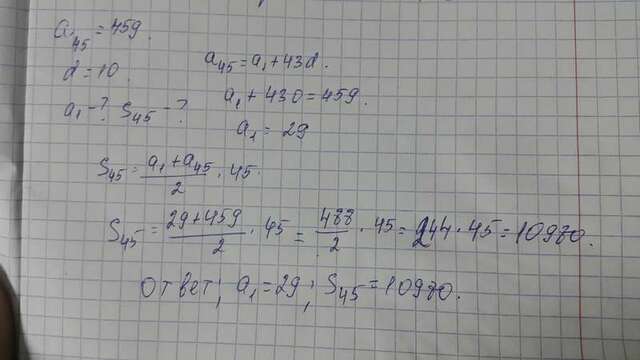 a₄₅ = 459.
d = 10.
a₁ - ? S₄₅ - ?
a₄₅ = a₁ + 43d.
a₁ + 430 = 459.
a₁ = 29
S₄₅ = (a₁ + a₄₅)/2 · 45.
S₄₅ = (29 + 459)/2 · 45 = 488/2 · 45 = 244 · 45 = 10980.
Ответ; a₁ = 29; S₄₅ = 10980.